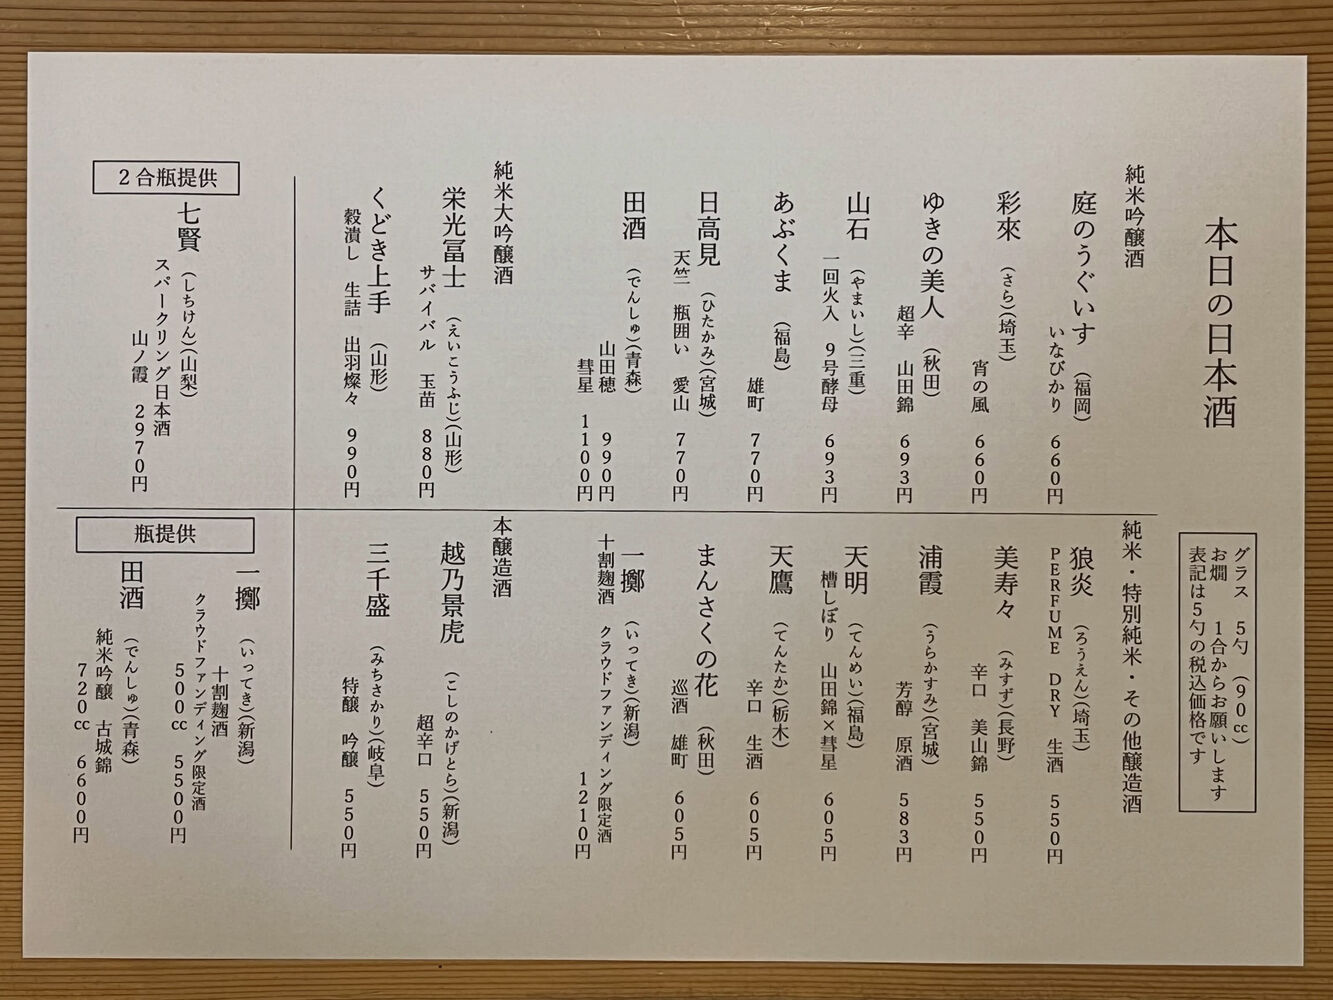 本日の日本酒
グラス　5勺　（90㏄）
お燗　1合からお願いします
表記は5勺の税込価格です
純米吟醸酒
庭のうぐいす　（福岡）
いなびかり　660円
彩來　（さら）（埼玉）
宵の風　660円
ゆきの美人　（秋田）
超辛　山田錦　693円
山石　（やまいし）（三重）
一回火入　9号酵母　693円
あぶくま　（福島）
雄町　770円
日高見　（ひたかみ）（宮城）
天竺　瓶囲い　愛山　770円
田酒　（でんしゅ）（青森）
山田穂　990円
彗星　1100円
純米大吟醸酒
栄光冨士　（えいこうふじ）（山形）
サバイバル　玉苗　880円
くどき上手　（山形）
穀潰し　生詰　出羽燦々　990円
純米・特別純米・その他醸造酒
狼炎　（ろうえん）（埼玉）
PERFUME　DRY　生酒　550円
美寿々　（みすず）（長野）
辛口　美山錦　550円
浦霞　（うらかすみ）（宮城）
芳醇　原酒　583円
天明　（てんめい）（福島）
槽しぼり　山田錦×彗星　605円
天鷹　（てんたか）（栃木）
辛口　生酒　605円
まんさくの花　（秋田）
巡酒　雄町　605円
一擲　（いってき）（新潟）
十割麹酒　クラウドファンディング限定酒
1210円
本醸造酒
越乃景虎　（こしのかげとら）（新潟）
超辛口　550円
三千盛　（みちさかり）（岐阜）
特醸　吟醸　550円
2合瓶提供
七賢　（しちけん）（山梨）
スパークリング日本酒
山ノ霞　2970円
瓶提供
一擲　（いってき）（新潟）
十割麹酒
クラウドファンディング限定酒
500㏄　5500円
田酒　（でんしゅ）（青森）
純米吟醸　古城錦
720㏄　6600円